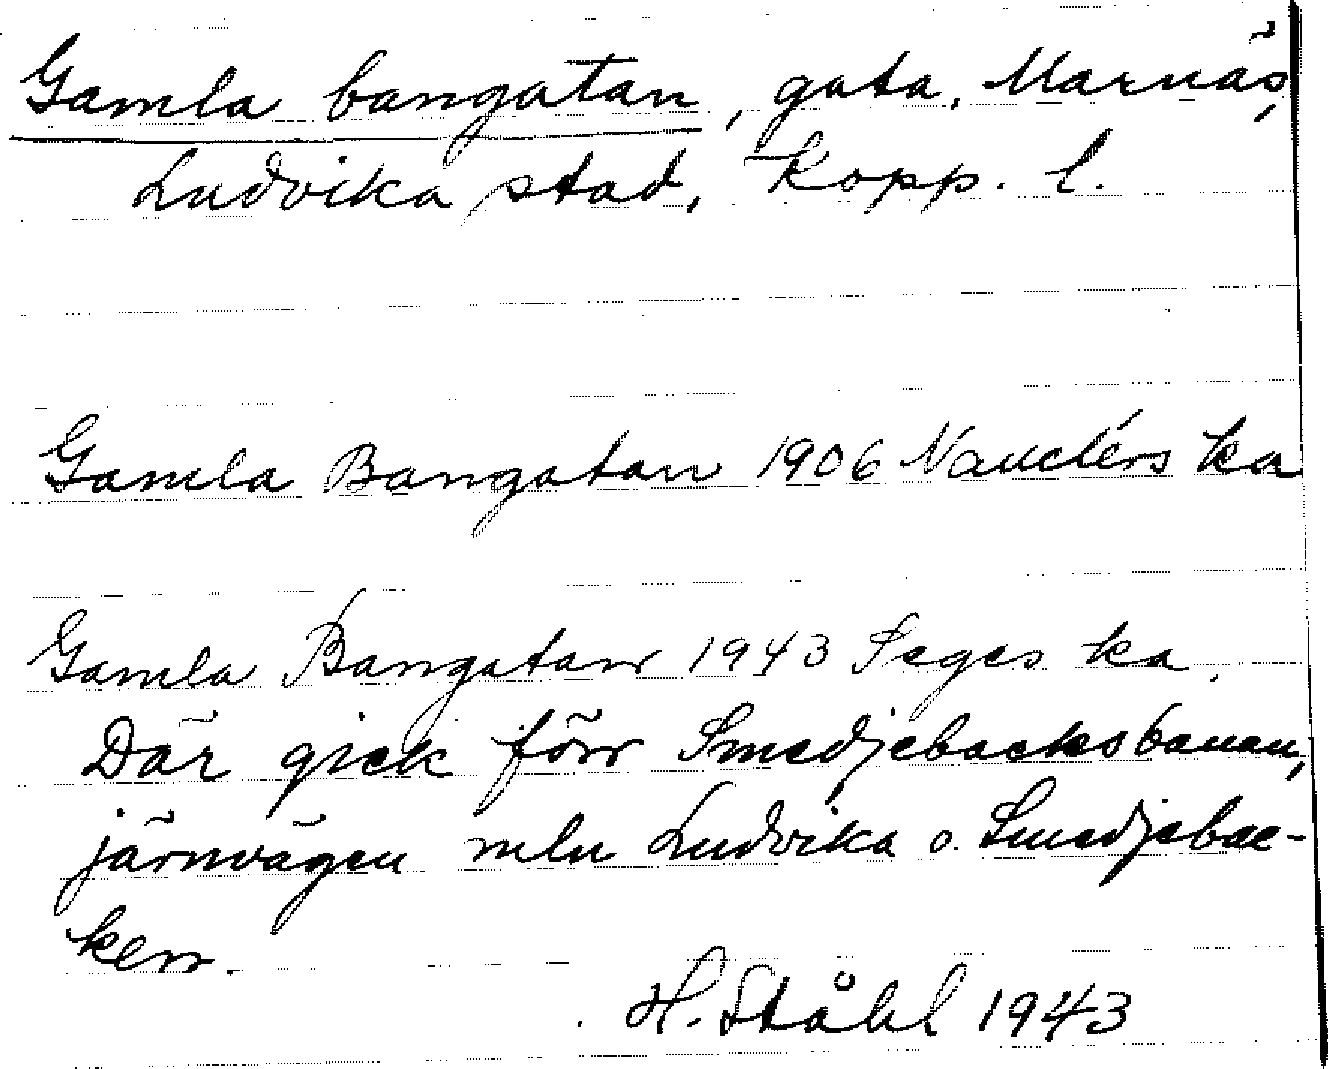 Gamla bangatan, gata, Marnäs,
Ludvika stad, Kopp. l.
Gamla Bangatan 1906 Nauclérs ka
Gamla Bangatan 1943 Seges ka.
Där gick förr Smedjebacksbanan,
järnvägen mln Ludvika o. Smedjebac-
ken.
H. Ståhl 1943